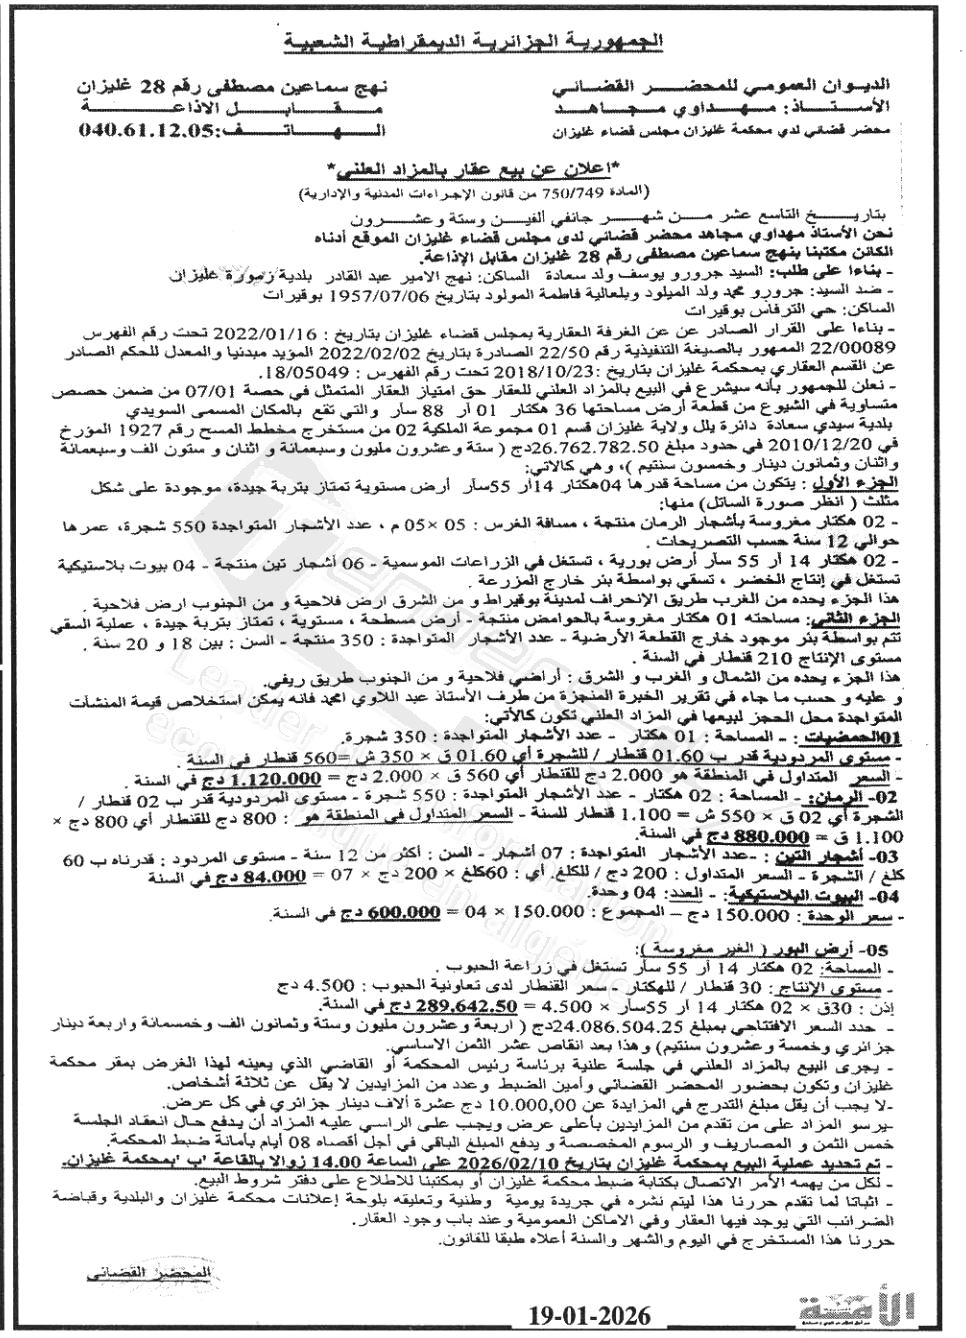 الجمهورية الجزائرية الديمقراطية الشعبية
الديوان العمومي للمحضر القضائي
الأستاذ: مهداوي مجاهد
محضر قضائي لدى محكمة غليزان مجلس قضاء غليزان
نهج سماعين مصطفى رقم 28 غليزان
مقابل الاذاعة
الهاتف:040.61.12.05
*إعلان عن بيع عقار بالمزاد العلني*
(المادة 750/749 من قانون الإجراءات المدنية والإدارية)
بتاريخ التاسع عشر من شهر جانفي ألفين وستة وعشرون
نحن الأستاذ مهداوي مجاهد محضر قضائي لدى مجلس قضاء غليزان الموقع أدناه
الكائن مكتبنا بنهج سماعين مصطفى رقم 28 غليزان مقابل الإذاعة.
- بناءا على طلب: السيد جرورو يوسف ولد سعادة الساكن: نهج الامير عبد القادر بلدية زمورة غليزان
- ضد السيد: جرورو محمد ولد الميلود وبلعالية فاطمة المولود بتاريخ 1957/07/06 بوقيرات
الساكن: حي الترفاس بوقيرات
- بناءا على القرار الصادر عن عن الغرفة العقارية بمجلس قضاء غليزان بتاريخ : 2022/01/16 تحت رقم الفهرس
22/00089 الممهور بالصيغة التنفيذية رقم 22/50 الصادرة بتاريخ 2022/02/02 المؤيد مبدئيا والمعدل للحكم الصادر
عن القسم العقاري بمحكمة غليزان بتاريخ :2018/10/23 تحت رقم الفهرس : 18/05049.
- نعلن للجمهور بأنه سيشرع في البيع بالمزاد العلني للعقار حق امتياز العقار المتمثل في حصة 07/01 من ضمن حصص
متساوية في الشيوع من قطعة أرض مساحتها 36 هكتار 01 أر 88 سار والتي تقع بالمكان المسمى السويدي
بلدية سيدي سعادة دائرة يلل ولاية غليزان قسم 01 مجموعة الملكية 02 من مستخرج مخطط المسح رقم 1927 المؤرخ
في 2010/12/20 في حدود مبلغ 26.762.782.50دج ( ستة وعشرون مليون وسبعمائة و اثنان و ستون الف وسبعمائة
واثنان وثمانون دينار وخمسون سنتيم )، وهي كالاتي:
الجزء الأول : يتكون من مساحة قدرها 04هكتار 14أر 55سار أرض مستوية تمتاز بتربة جيدة، موجودة على شكل
مثلث ( انظر صورة الساتل) منها:
- 02 هكتار مغروسة بأشجار الرمان منتجة ، مسافة الغرس : 05 ×05 م ، عدد الأشجار المتواجدة 550 شجرة، عمرها
حوالي 12 سنة حسب التصريحات .
- 02 هكتار 14 أر 55 سار أرض بورية ، تستغل في الزراعات الموسمية - 06 أشجار تين منتجة - 04 بيوت بلاستيكية
تستغل في إنتاج الخضر ، تسقي بواسطة بئر خارج المزرعة .
هذا الجزء يحده من الغرب طريق الإنحراف لمدينة بوقيراط و من الشرق ارض فلاحية و من الجنوب ارض فلاحية .
الجزء الثاني: مساحته 01 هكتار مغروسة بالحوامض منتجة - أرض مسطحة ، مستوية ، تمتاز بتربة جيدة ، عملية السقي
تتم بواسطة بئر موجود خارج القطعة الأرضية - عدد الأشجار المتواجدة : 350 منتجة - السن : بين 18 و 20 سنة .
مستوى الإنتاج 210 قنطار في السنة .
هذا الجزء يحده من الشمال و الغرب و الشرق : أراضي فلاحية و من الجنوب طريق ريفي.
و عليه و حسب ما جاء في تقرير الخبرة المنجزة من طرف الأستاذ عبد اللاوي امحمد فانه يمكن استخلاص قيمة المنشآت
المتواجدة محل الحجز لبيعها في المزاد العلني تكون كالأتي:
01الحمضيات : - المساحة : 01 هكتار - عدد الأشجار المتواجدة : 350 شجرة.
- مستوى المردودية قدر ب 01.60 قنطار / للشجرة أي 01.60 ق × 350 ش =560 قنطار في السنة .
- السعر المتداول في المنطقة هو 2.000 دج للقنطار أي 560 ق × 2.000 دج = 1.120.000 دج في السنة .
02- الرمان: - المساحة : 02 هكتار - عدد الأشجار المتواجدة : 550 شجرة - مستوى المردودية قدر ب 02 قنطار /
الشجرة أي 02 ق × 550 ش = 1.100 قنطار للسنة - السعر المتداول في المنطقة هو : 800 دج للقنطار أي 800 دج ×
1.100 ق = 880.000 دج في السنة.
03- أشجار التين : -عدد الأشجار المتواجدة : 07 أشجار - السن : أكثر من 12 سنة - مستوى المردود : قدرناه ب 60
كلغ / الشجرة - السعر المتداول : 200 دج / للكلغ. أي : 60كلغ × 200 دج × 07 = 84.000 دج في السنة
04- البيوت البلاستيكية: - العدد: 04 وحدة.
- سعر الوحدة : 150.000 دج – المجموع : 150.000 × 04 = 600.000 دج في السنة.
05- أرض البور ( الغير مغروسة ):
- المساحة: 02 هكتار 14 أر 55 سار تستغل في زراعة الحبوب .
- مستوى الإنتاج: 30 قنطار / للهكتار - سعر القنطار لدى تعاونية الحبوب : 4.500 دج
إذن : 30ق × 02 هكتار 14 أر 55سار × 4.500 = 289,642.50 دج في السنة.
- حدد السعر الافتتاحي بمبلغ 24.086.504.25دج ( اربعة وعشرون مليون وستة وثمانون الف وخمسمائة واربعة دينار
جزائري وخمسة وعشرون سنتيم) وهذا بعد انقاص عشر الثمن الاساسي.
- يجرى البيع بالمزاد العلني في جلسة علنية برئاسة رئيس المحكمة أو القاضي الذي يعينه لهذا الغرض بمقر محكمة
غليزان وتكون بحضور المحضر القضائي وأمين الضبط وعدد من المزايدين لا يقل عن ثلاثة أشخاص.
-لا يجب أن يقل مبلغ التدرج في المزايدة عن 10.000,00 دج عشرة ألاف دينار جزائري في كل عرض.
-يرسو المزاد على من تقدم من المزايدين بأعلى عرض ويجب على الراسي عليه المزاد أن يدفع حال انعقاد الجلسة
خمس الثمن و المصاريف و الرسوم المخصصة و يدفع المبلغ الباقي في أجل أقصاه 08 أيام بأمانة ضبط المحكمة.
- تم تحديد عملية البيع بمحكمة غليزان بتاريخ 2026/02/10 على الساعة 14.00 زوالا بالقاعة 'ب 'بمحكمة غليزان.
- لكل من يهمه الأمر الاتصال بكتابة ضبط محكمة غليزان أو بمكتبنا للاطلاع على دفتر شروط البيع.
- اثباتا لما تقدم حررنا هذا ليتم نشره في جريدة يومية وطنية وتعليقه بلوحة إعلانات محكمة غليزان والبلدية وقباضة
الضرائب التي يوجد فيها العقار وفي الاماكن العمومية وعند باب وجود العقار.
حررنا هذا المستخرج في اليوم والشهر والسنة أعلاه طبقا للقانون.
المحضر القضائي
19-01-2026
الأمة